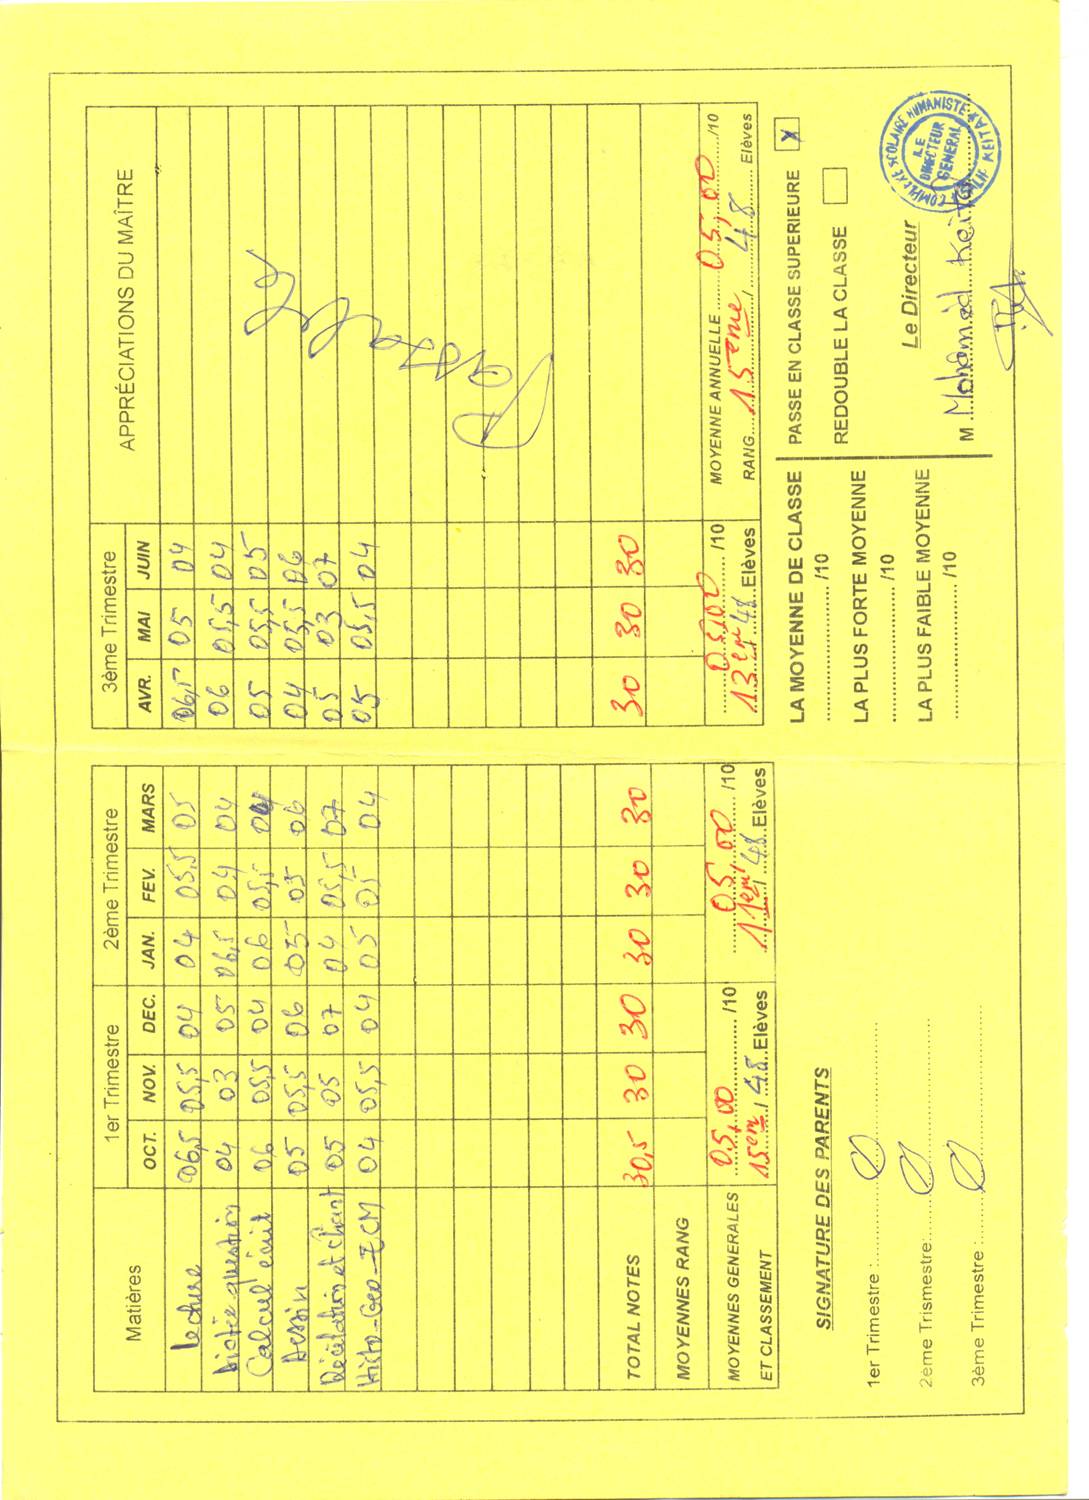 1er Trimestre 2ème Trimestre 3ème Trimestre
Matières OCT. NOV. DEC. JAN. FEV. MARS AVR. MAI JUIN APPRÉCIATIONS DU MAÎTRE
lecture 06,5 05,5 04 04 05,5 05 06,5 05 04
Dictée-question 04 03 05 06,5 04 04 06 05,5 04
Calcul écrit 06 05,5 04 06 05,5 04 05 05,5 05
Dessin 05 05,5 06 05 05 06 04 05,5 06
Récitation et Chant 05 05 07 04 05,5 07 05 03 07
Histo-Geo-ECM 04 05,5 04 05 05 04 05 05,5 04
Passable
TOTAL NOTES 30,5 30 30 30 30 30 30 30 30
MOYENNES RANG
MOYENNES GENERALES 05,00 /10 05,00 /10 05,00 /10 MOYENNE ANNUELLE 05,00 /10
ET CLASSEMENT 15em / 48 Elèves 11em / 48 Elèves 13em 48 Elèves RANG 15eme / 48 Elèves
SIGNATURE DES PARENTS
1er Trimestre :
2ème Trismestre:
3ème Trimestre :
LA MOYENNE DE CLASSE
/10
LA PLUS FORTE MOYENNE
/10
LA PLUS FAIBLE MOYENNE
/10
PASSE EN CLASSE SUPERIEURE X
REDOUBLE LA CLASSE
Le Directeur
M Mohamed Keita
COMPLEXE SCOLAIRE HUMANISTE
LE
DIRECTEUR
GENERAL
KEITA